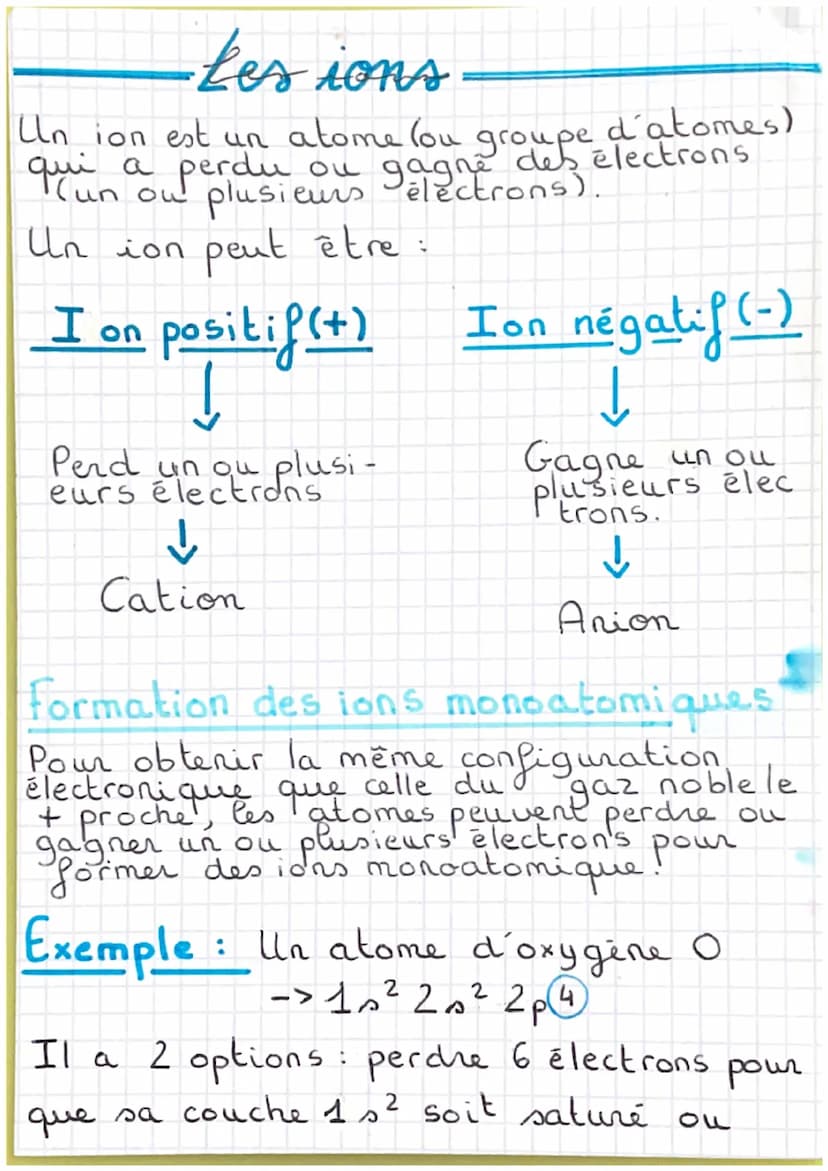 Les ions
Un ion est un atome (ou groupe d'atomes)
qui a perdu ou gagné des électrons
(un ou plusieurs électrons).
Un ion peut être :
Ion positif (+) Ion négatif (-)
↓ ↓
Perd un ou plusi-
eurs électrons
Gagne un ou
plusieurs élec
trons.
↓ ↓
Cation
Anion
Formation des ions monoatomiques
Pour obtenir la même configuration
électronique que celle du gaz noble le
+ proche, les atomes peuvent perdre ou
gagner un ou plusieurs électrons pour
former des ions monoatomique.
Exemple : Un atome d'oxygène O
-> 1s² 2s² 2p⁴
Il a 2 options : perdre 6 électrons pour
que sa couche 1s² soit saturé ou